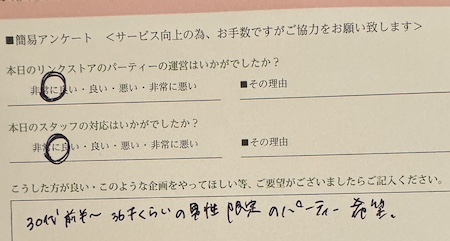 ■簡易アンケート　＜サービス向上の為、お手数ですがご協力をお願い致します＞
本日のリンクストアのパーティーの運営はいかがでしたか？
非常に良い・良い・悪い・非常に悪い　■その理由
本日のスタッフの対応はいかがでしたか？
非常に良い・良い・悪い・非常に悪い　■その理由
こうした方が良い・このような企画をやってほしい等、ご要望がございましたらご記入ください。
30代前半～36才くらいの男性限定のパーティー希望。